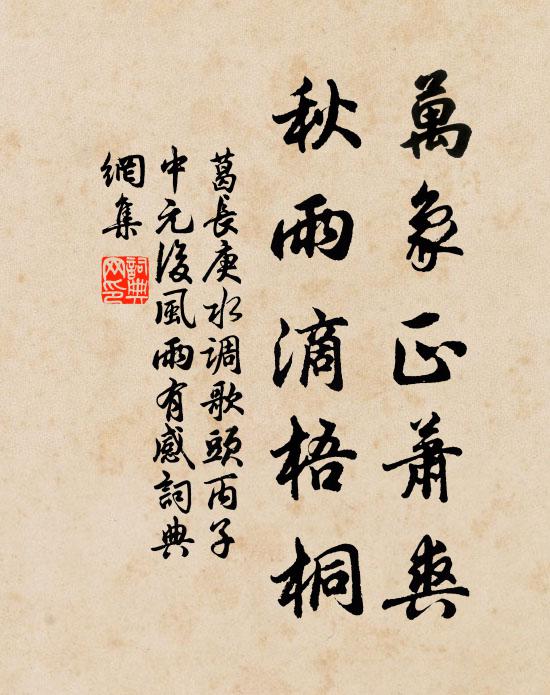 萬象正蕭爽
秋雨滴梧桐
葛長庚水調歌頭丙子
中元後風雨有感詞典
網集
詞典
网印